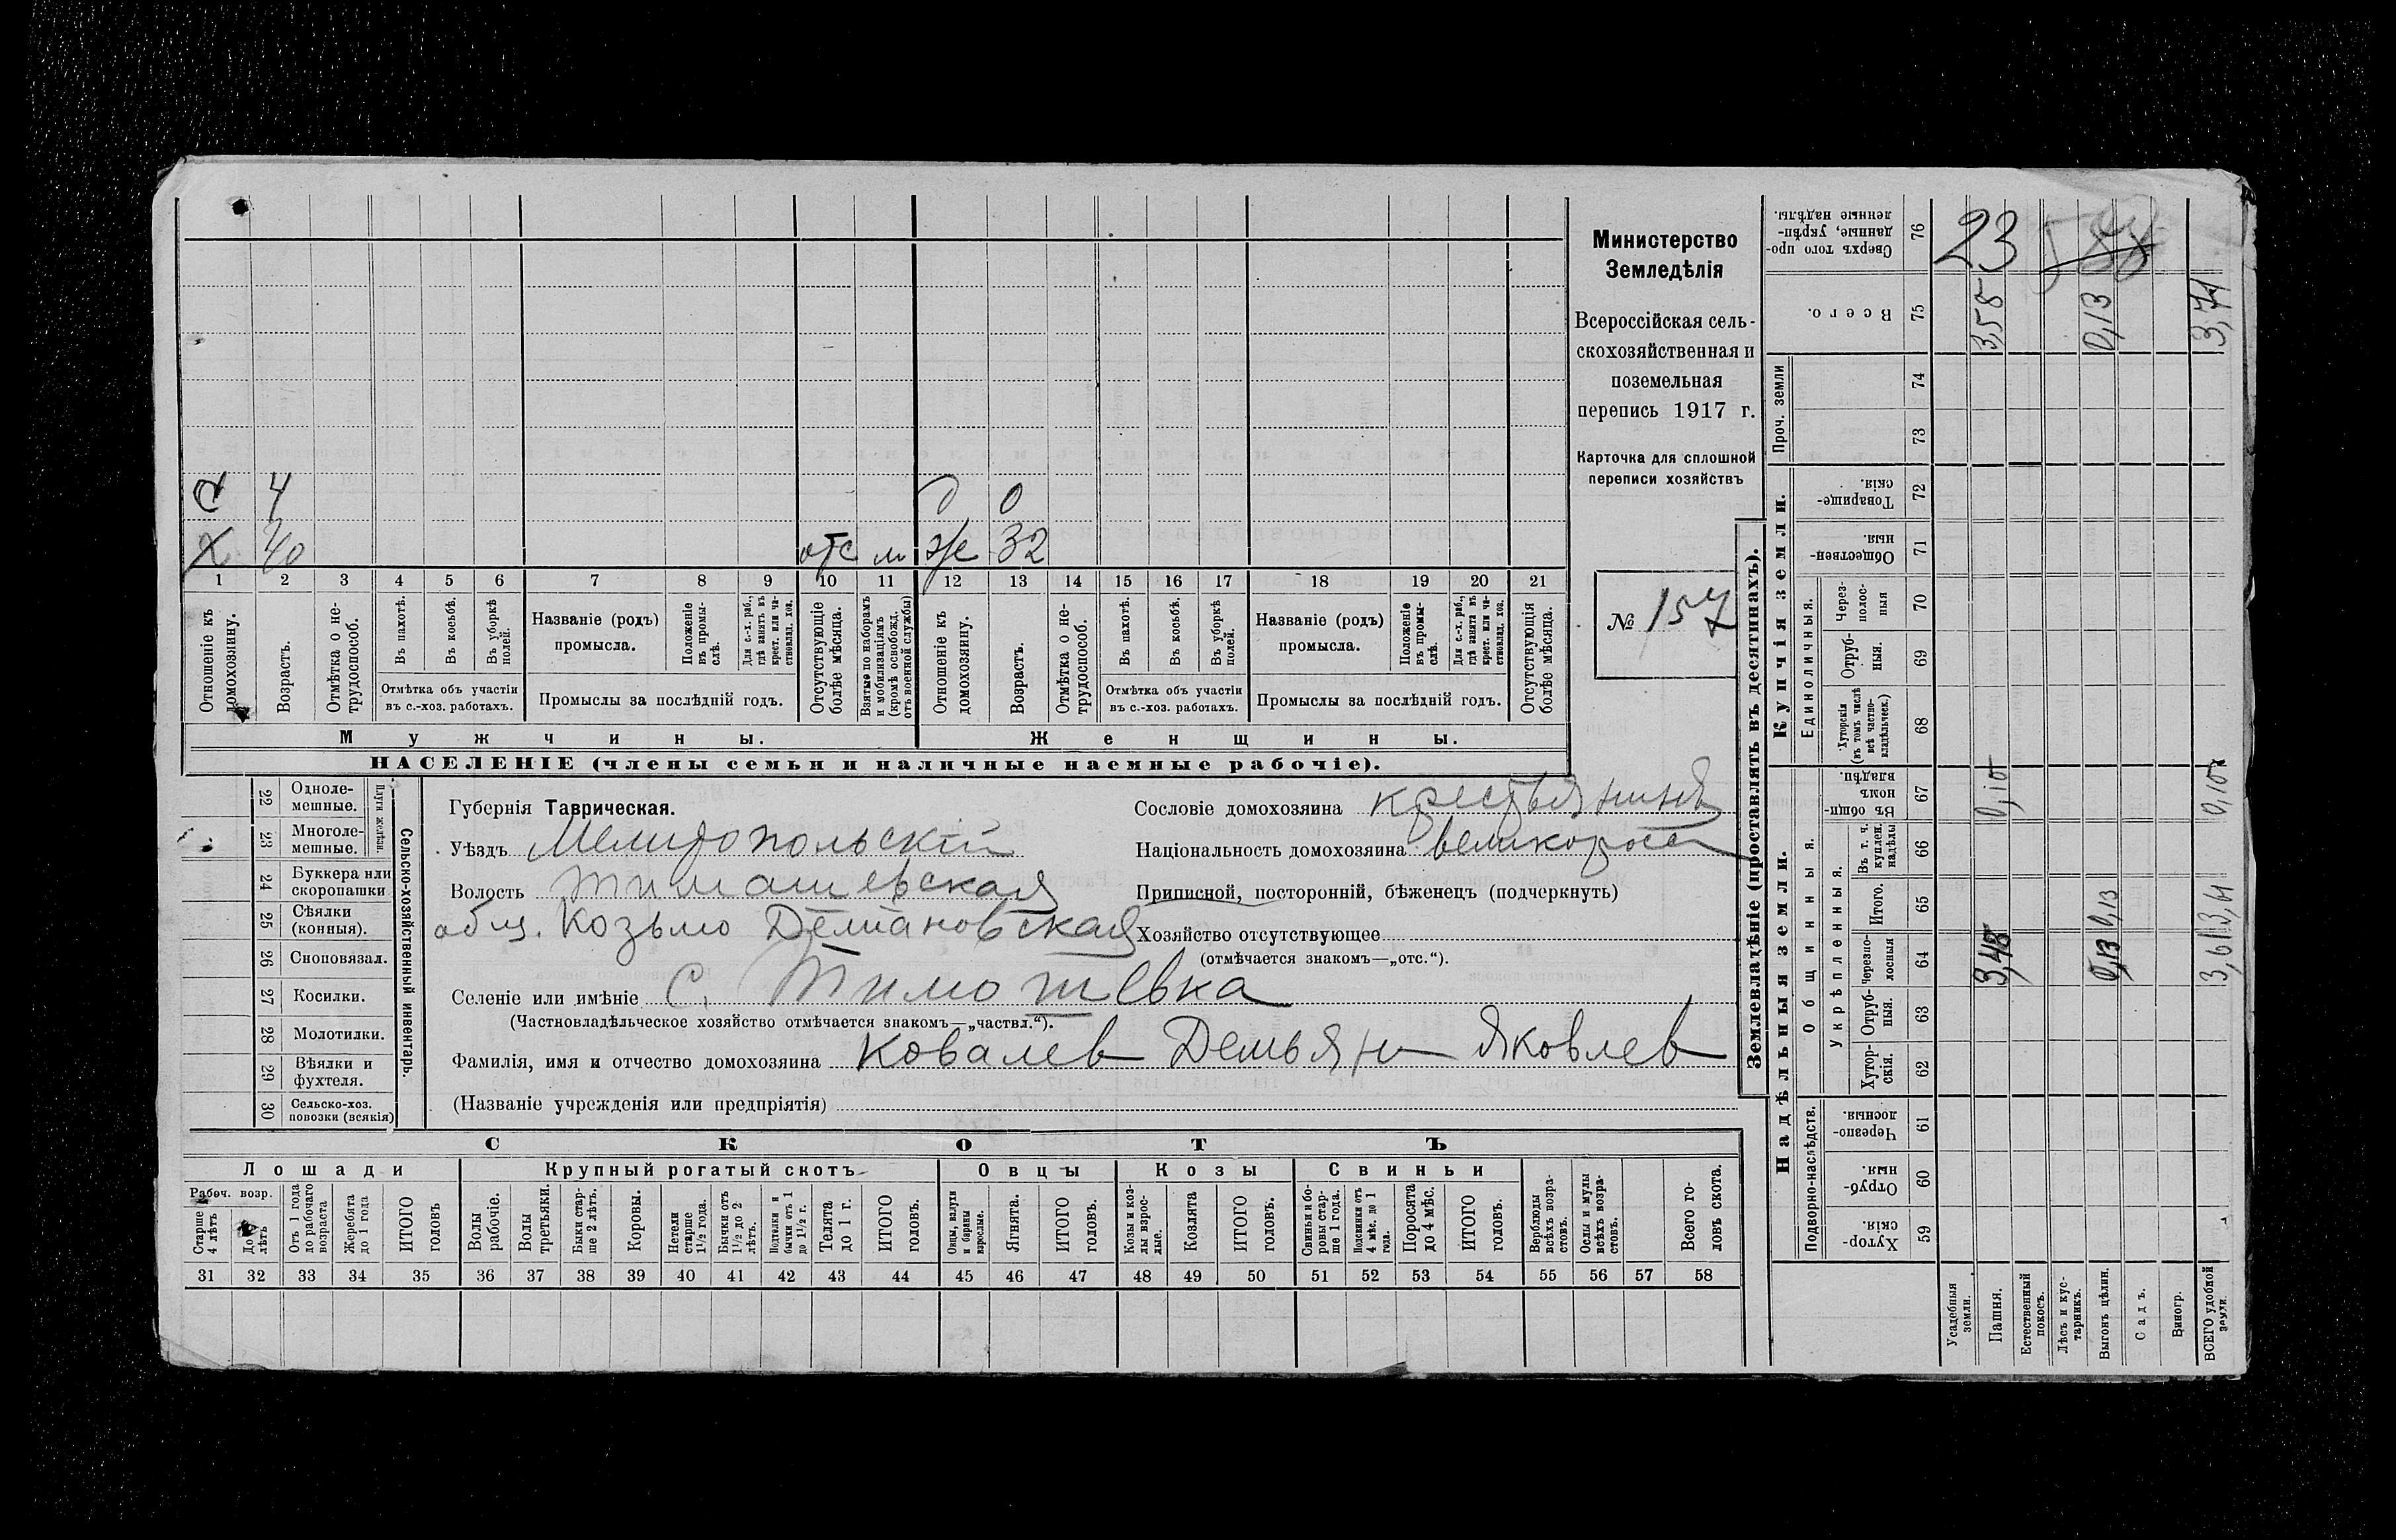 с 4 д 0
х 40 отс м ж 32
1 2 3 4 5 6 7 8 9 10 11 12 13 14 15 16 17 18 19 20 21
Отношеніе къ домохозяину.
Возрастъ.
Отмѣтка о не-трудоспособ.
Въ пахотѣ.
Въ косьбѣ.
Въ уборкѣ полей.
Отмѣтка объ участіи
въ с.-хоз. работахъ.
Названіе (родъ)
промысла.
Положеніе въ промы-слѣ.
Для с.-х. раб., гдѣ занятъ въ крест. или ча-стновлад. хоз.
Промыслы за послѣдній годъ.
Отсутствующіе болѣе мѣсяца.
Взятые по наборамъ и мобилизаціямъ (кромѣ освобожд. отъ военной службы)
Отношеніе къ домохозяину.
Возрастъ.
Отмѣтка о не-трудоспособ.
Въ пахотѣ.
Въ косьбѣ.
Въ уборкѣ полей.
Отмѣтка объ участіи
въ с.-хоз. работахъ.
Названіе (родъ)
промысла.
Положеніе въ промы-слѣ.
Для с.-х. раб., гдѣ занята въ крест. или ча-стновлад. хоз.
Промыслы за послѣдній годъ.
Отсутствующія болѣе мѣсяца.
Мужчины.
Женщины.
НАСЕЛЕНІЕ (члены семьи и наличные наемные рабочіе).
Министерство
Земледѣлія
Всероссійская сель-
скохозяйственная и
поземельная
перепись 1917 г.
Карточка для сплошной
переписи хозяйствъ
№ 157
22 Одноле-мешные.
23 Многоле-мешные.
Плуги желѣзн.
24 Буккера или скоропашки
25 Сѣялки (конныя).
26 Сноповязал.
27 Косилки.
28 Молотилки.
29 Вѣялки и фухтеля.
30 Сельско-хоз. повозки (всякія)
Сельско-хозяйственный инвентарь.
Губернія Таврическая.
Уѣздъ Мелитопольскій
Волость Тимашевская
общ. Козьмо Демановская
Селеніе или имѣніе с. Тимошевка
(Частновладѣльческое хозяйство отмѣчается знакомъ—„частвл.“).
Фамилія, имя и отчество домохозяина Ковалев Демьян Яковлев
(Названіе учрежденія или предпріятія)
Сословіе домохозяина крестьянинъ
Національность домохозяина великоросс
Приписной, посторонній, бѣженецъ (подчеркнуть)
Хозяйство отсутствующее
(отмѣчается знакомъ—„отс.“).
СКОТЪ
Лошади
Рабоч. возр.
Старше 4 лѣтъ
До 4 лѣтъ
Отъ 1 года до рабочаго возраста
Жеребята до 1 года
ИТОГО головъ
Крупный рогатый скотъ
Волы рабочіе.
Волы третьяки.
Быки стар-ше 2 лѣтъ.
Коровы.
Нетели старше 1½ года.
Бычки отъ 1½ до 2 лѣтъ.
Подтелки и бычки отъ 1 до 1½ г.
Телята до 1 г.
ИТОГО головъ.
Овцы
Овцы, валухи и бараны взрослые.
Ягнята.
ИТОГО головъ.
Козы
Козы и коз-лы взрос-лые.
Козлята
ИТОГО головъ.
Свиньи
Свиньи и бо-ровы стар-ше 1 года.
Подсвинки отъ 4 мѣс. до 1 года.
Поросята до 4 мѣс.
ИТОГО головъ.
Верблюды всѣхъ возра-стовъ.
Ослы и мулы всѣхъ возра-стовъ.
Всего го-ловъ скота.
31 32 33 34 35 36 37 38 39 40 41 42 43 44 45 46 47 48 49 50 51 52 53 54 55 56 57 58
Землевладѣніе (проставлять въ десятинахъ).
Сверхъ того про-данные, укрѣп-ленные надѣлы. 76 23
Всего. 75 3,58 0,13 3,71
Проч. земли
74
73
Купчія земли.
Товарище-скія. 72
Обществен-ныя. 71
Единоличныя.
Через-полос-ныя 70
Отруб-ныя. 69
Хуторскія (въ томъ числѣ всѣ частно-владѣльческ.) 68
Надѣльныя земли.
Общинныя.
Въ общи-номъ владѣн. 67 0,10 0,10
Укрѣпленныя.
Въ т. ч. куплен. надѣлы 66
Итого. 65 0,13 3,61
Черезпо-лосныя 64 3,48 0,13 3,61
Отруб-ныя. 63
Хутор-скія. 62
Подворно-наслѣдств.
Черезпо-лосныя. 61
Отруб-ныя. 60
Хутор-скія. 59
Усадебныя земли.
Пашня.
Естественный покосъ.
Лѣсъ и кус-тарникъ.
Выгонъ цѣлин.
Садъ.
Виногр.
ВСЕГО удобной земли.